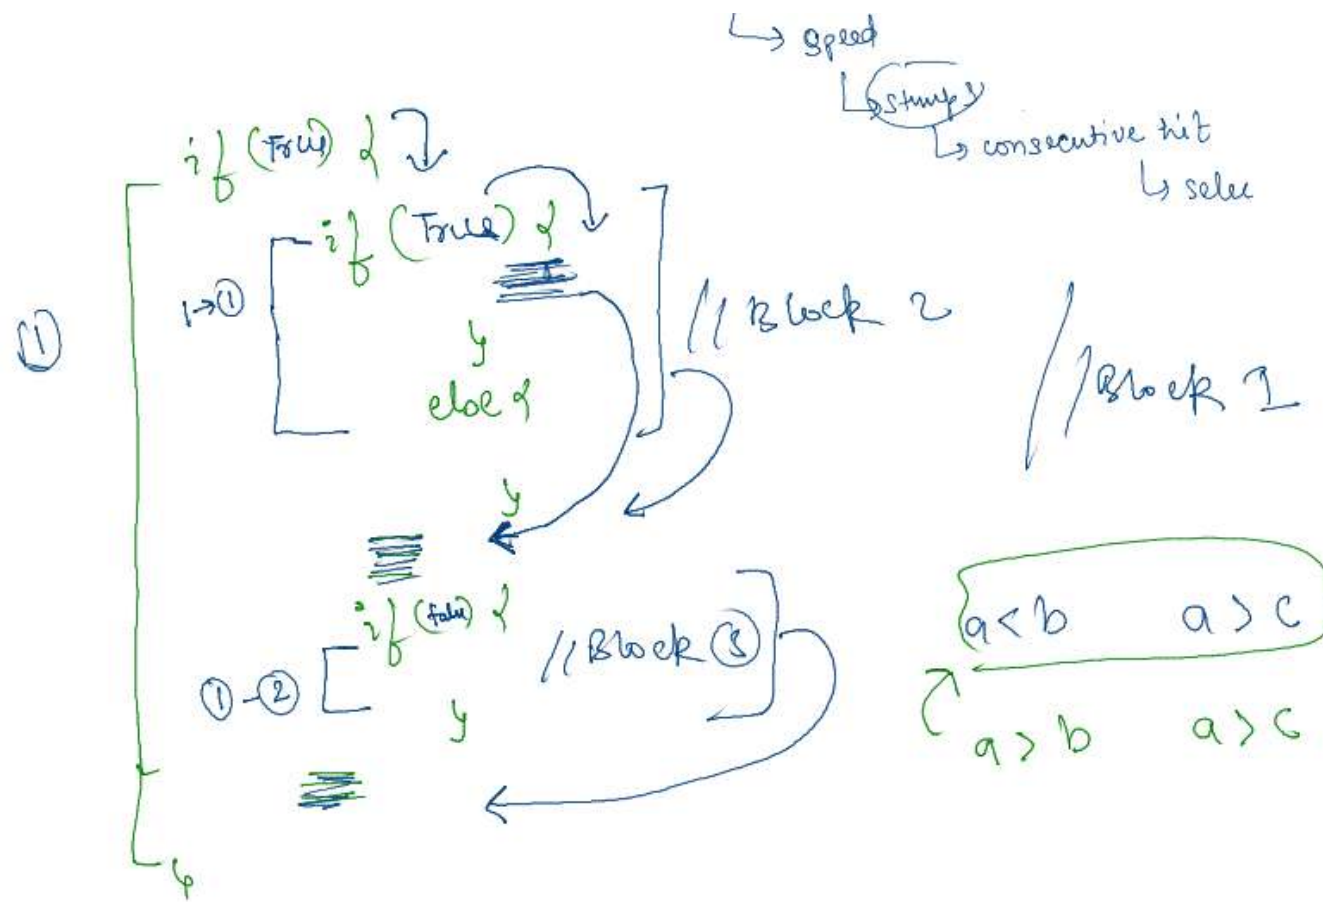 ↳ speed
↳ stumps
↳ consecutive hit
↳ selec
if (True) {
if (True) {
1→①
}
else {
}
// Block 2
// Block 1
①
if (false) {
// Block ③
①-②
}
}
a<b a>c
a>b a>c